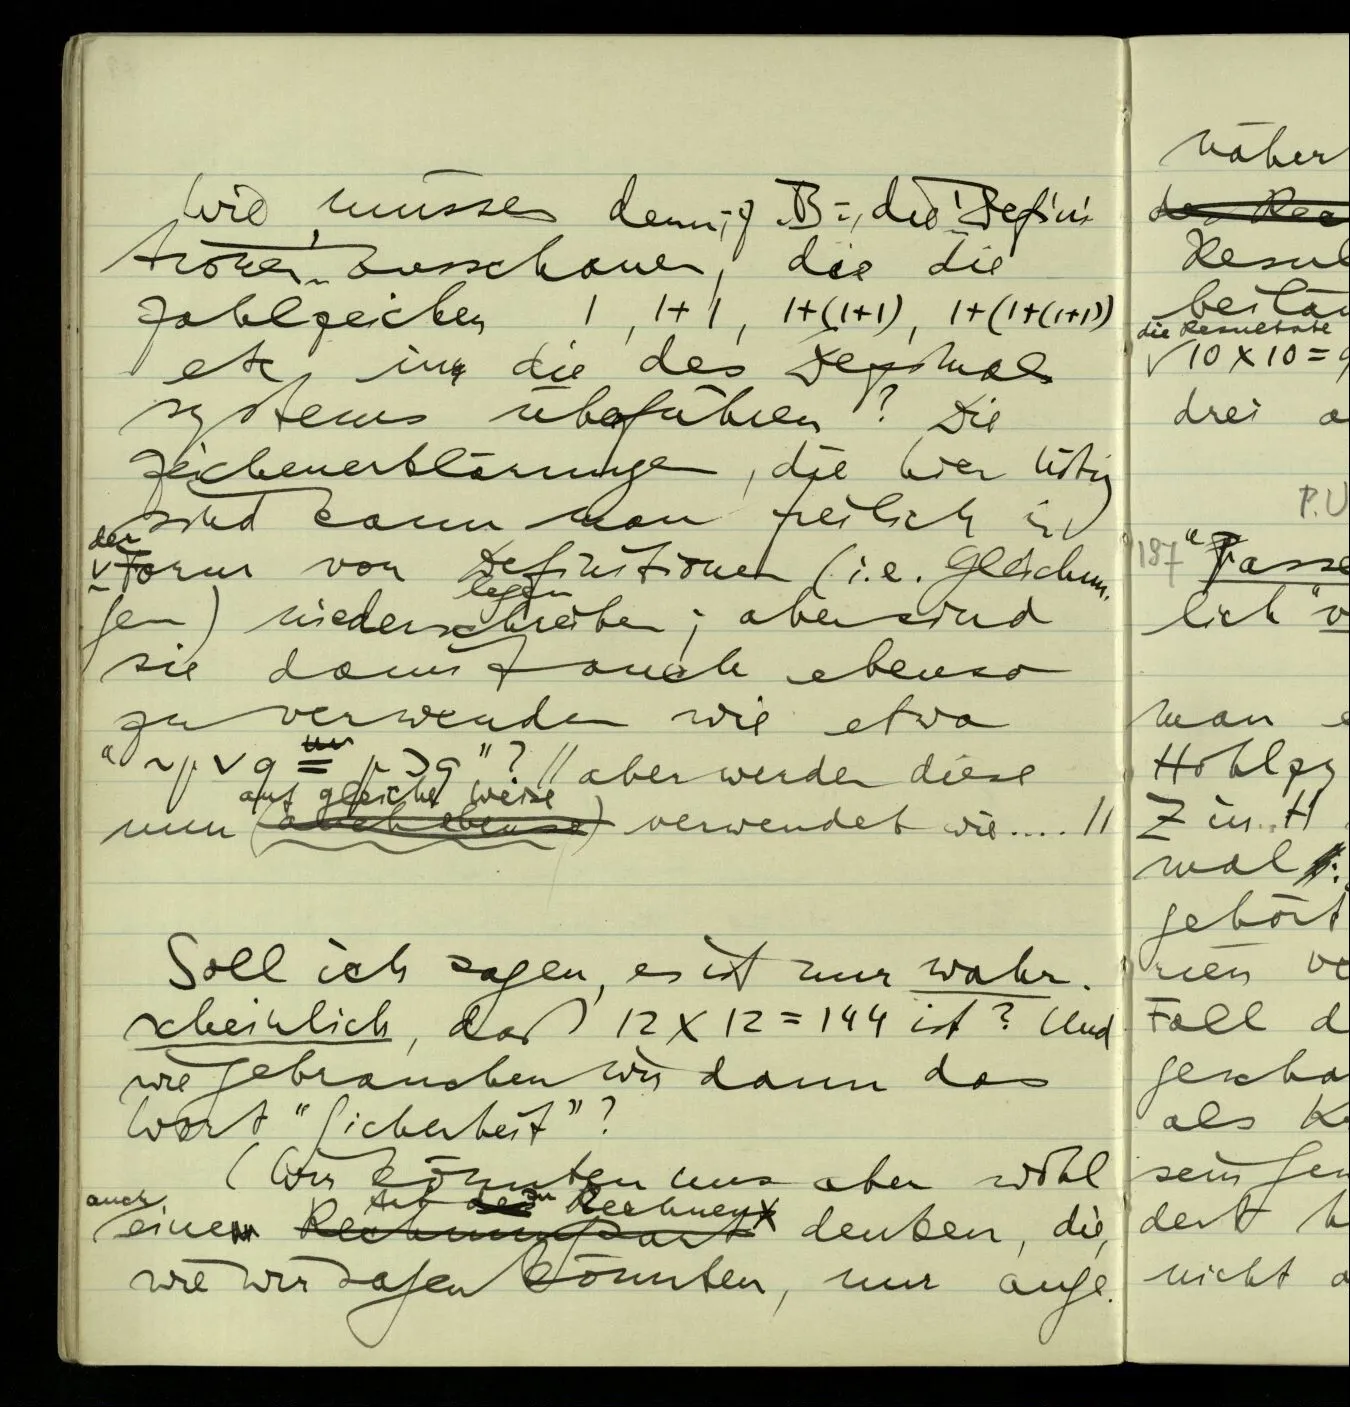 Wie müssen denn, z.B., die Defini-
tionen ausschauen, die die
Zahlzeichen 1, 1+1, 1+(1+1), 1+(1+(1+1))
etc, in die des Dezimal
systems überführen? Die
Zeichenerklärungen, die hier nötig
sind kann man freilich in
der
Form von Definitionen (i.e. Gleichun-
legen
gen) niederschreiben; aber sind
sie damit auch ebenso
zu verwenden wie etwa
"~p∨q = p⊃q"? // aber werden diese
auf gleiche Weise
nun (auch ebenso) verwendet wie.... //
Soll ich sagen, es ist nur wahr-
scheinlich, daß 12 × 12 = 144 ist? Und
wie gebrauchen wir dann das
Wort "Sicherheit"?
(Wir könnten uns aber wohl
auch Art zu Rechnen
eine Rechnungsart denken, die,
wie wir sagen könnten, nur ange-
näher
Resul
die Resultate
10 × 10 =
drei
P.U
187 "Fasse
lich "v
man e
Hohlzy
Z in H
mal
gehört
rien ve
Fall d
gescha
als K
sein
dert
nicht a